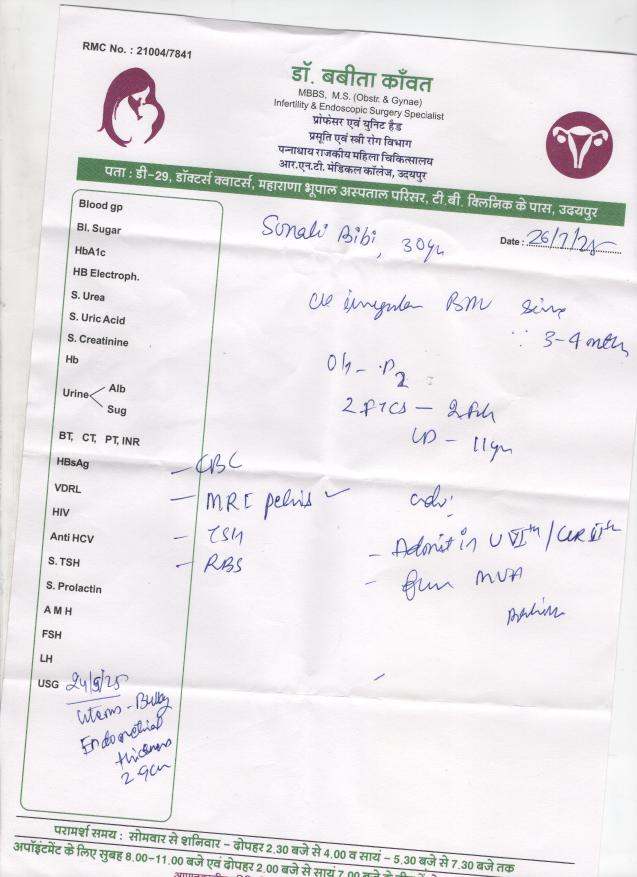 RMC No. : 21004/7841
डॉ. बबीता काँवत
MBBS, M.S. (Obstr. & Gynae)
Infertility & Endoscopic Surgery Specialist
प्रोफेसर एवं युनिट हैड
प्रसूति एवं स्त्री रोग विभाग
पन्नाधाय राजकीय महिला चिकित्सालय
आर.एन.टी. मेडिकल कॉलेज, उदयपुर
पता : डी-29, डॉक्टर्स क्वाटर्स, महाराणा भूपाल अस्पताल परिसर, टी.बी. क्लिनिक के पास, उदयपुर
Sonali Bibi, 30yr
Date : 26/7/25
Blood gp
Bl. Sugar
HbA1c
HB Electroph.
S. Urea
S. Uric Acid
S. Creatinine
Hb
Urine Alb
Sug
BT, CT, PT, INR
HBsAg
VDRL
HIV
Anti HCV
S. TSH
S. Prolactin
A M H
FSH
LH
USG 24/5/25
Uterus - Bulky
Endometrial
thickness
2.9cm
c/o irregular since
3-4 mth
O/h - P2
2 FTCS -
LD - 11yr
- CBC
- MRI pelvis
- TSH
- RBS
adv:
- Admit in U VI th /
- MVA
परामर्श समय : सोमवार से शनिवार - दोपहर 2.30 बजे से 4.00 व सायं - 5.30 बजे से 7.30 बजे तक
अपॉइंटमेंट के लिए सुबह 8.00-11.00 बजे एवं दोपहर 2.00 बजे से सायं 7.00 बजे